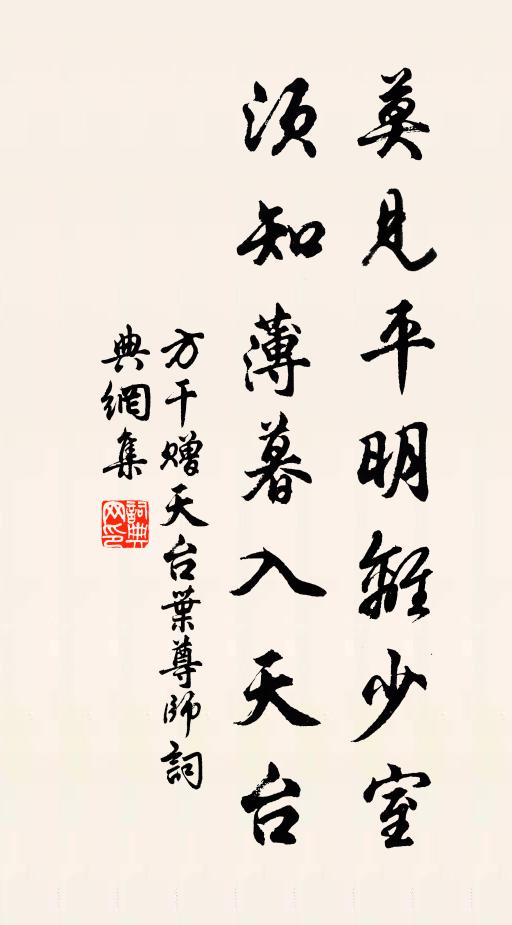 莫見平明離少室
須知薄暮入天台
方干贈天台葉尊師詞
典網集
詞典網印